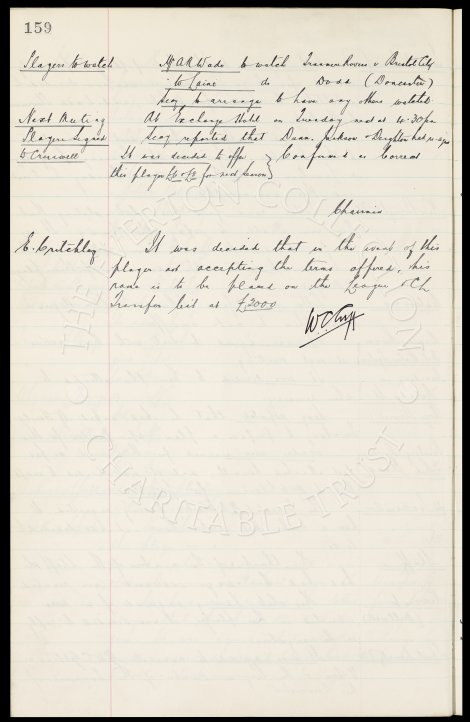 159
Players to watch Mr A.R. Wade to watch Tranmere Rovers v Bristol City
to Laine do Dodd (Doncaster)
Secy to arrange to have any others watched
Next Meeting At Exchange Hotel on Tuesday next at 4.30 pm
Players Signed Secy reported that Dunn, Jackson & Deighton had re-sigd
W Cresswell It was decided to offer
this player £6 & £8 for next season } Confirmed as Correct
Chairman
E. Critchley It was decided that in the event of this
player not accepting the terms offered, his
name is to be placed on the League & Ch
Transfer list at £2000
W.C. Cuff
THE EVERTON COLLECTION
CHARITABLE TRUST